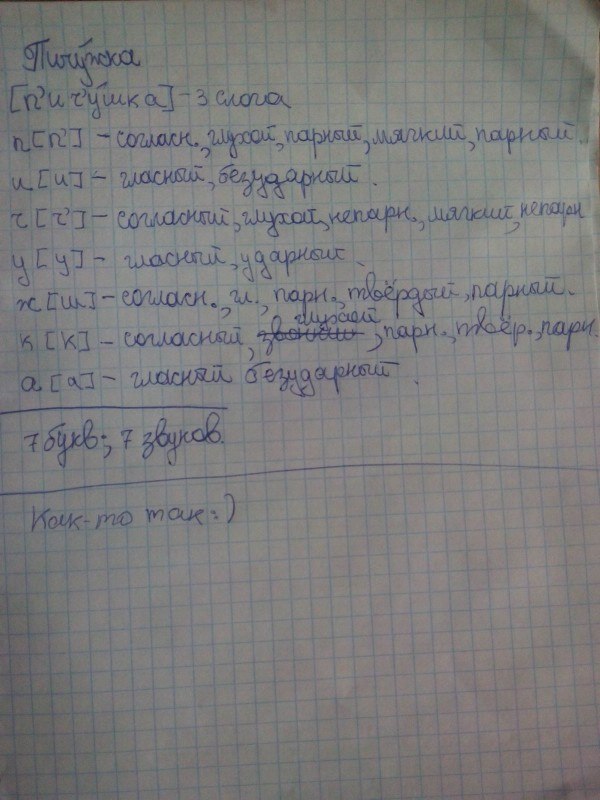 Пичу́жка
[п'ич'у́шка] - 3 слога
п [п'] - согласн., глухой, парный, мягкий, парный.
и [и] - гласный, безударный.
ч [ч'] - согласный, глухой, непарн., мягкий, непарн
у [у] - гласный, ударный.
ж [ш] - согласн., гл., парн., твёрдый, парный.
глухой
к [к] - согласный, звонкий, парн., твёр., парн.
а [а] - гласный безударный.
7 букв; 7 звуков.
Как-то так :)